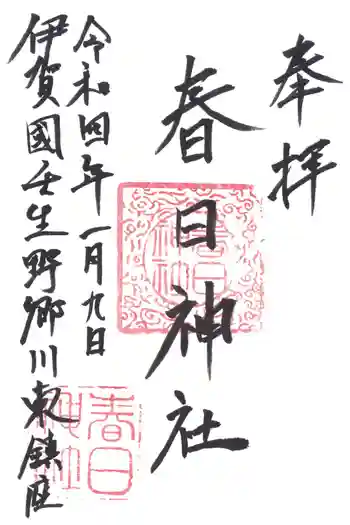 奉拝
春日神社
令和四年一月九日
伊賀國壬生野郷川東鎮座
春日神社
春日神社